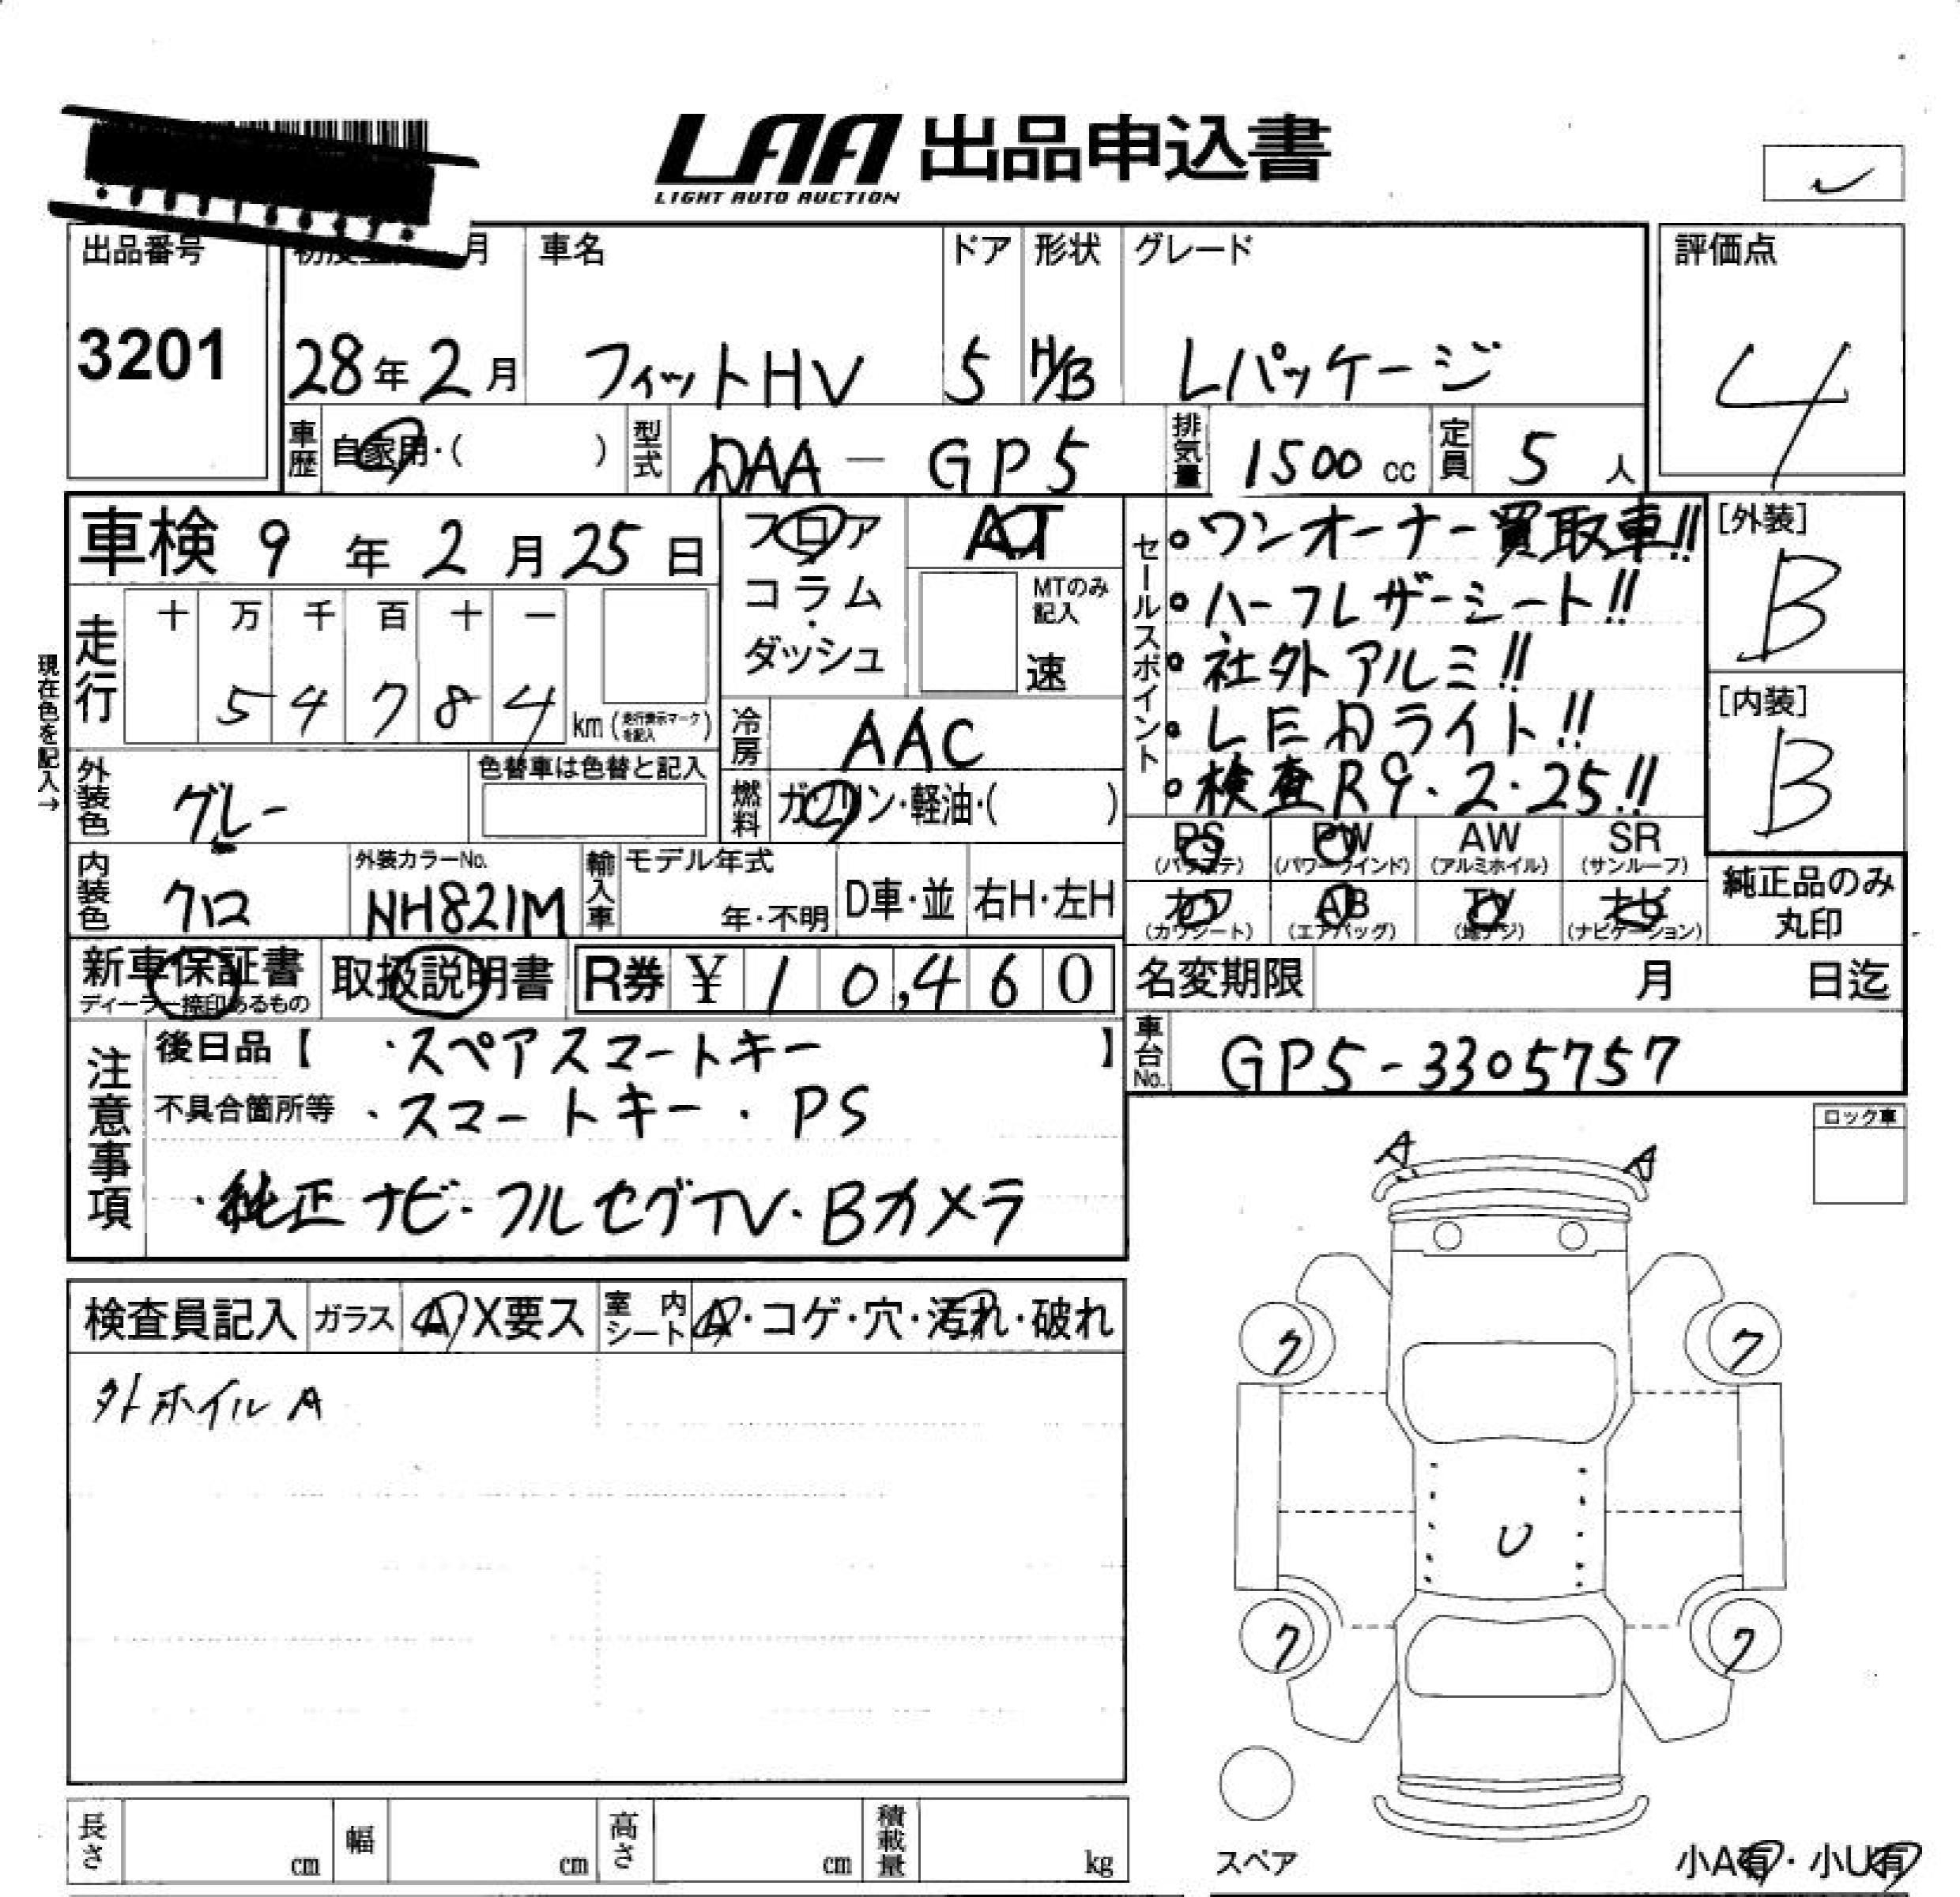 LAA 出品申込書
LIGHT AUTO AUCTION
出品番号
3201
月
28年2月
車名
フィットHV
ドア
5
形状
H/B
グレード
Lパッケージ
評価点
4
車歴 自家用・( )
型式 DAA-GP5
排気量 1500cc
定員 5人
車検 9年2月25日
フロア
コラム・
ダッシュ
AT
MTのみ記入
速
セールスポイント
。ワンオーナー買取車!!
。ハーフレザーシート!!
。社外アルミ!!
。LEDライト!!
。検査R9.2.25!!
[外装]
B
[内装]
B
現在色を記入→
走行
十 万 千 百 十 一
5 4 7 8 4 km(走行表示マークを記入)
冷房 AAC
燃料 ガソリン・軽油・( )
外装色 グレー
色替車は色替と記入
内装色 クロ
外装カラーNo.
NH821M
輸入車
モデル年式
年・不明
D車・並
右H・左H
PS (パワステ)
PW (パワーウインド)
AW (アルミホイル)
SR (サンルーフ)
カワ (カワシート)
AB (エアバッグ)
TV (地デジ)
ナビ (ナビゲーション)
純正品のみ
丸印
新車保証書
ディーラー捺印あるもの
取扱説明書
R券 ¥10,460
名変期限 月 日迄
車台No. GP5-3305757
注意事項
後日品【 ・スペアスマートキー 】
不具合箇所等 ・スマートキー・PS
・純正ナビ・フルセグTV・Bカメラ
ロック車
A A
検査員記入
ガラス A X要ス
室内シート A・コゲ・穴・汚れ・破れ
外ホイルA
ク ク
U
ク ク
スペア
小A有・小U有
長さ cm
幅 cm
高さ cm
積載量 kg